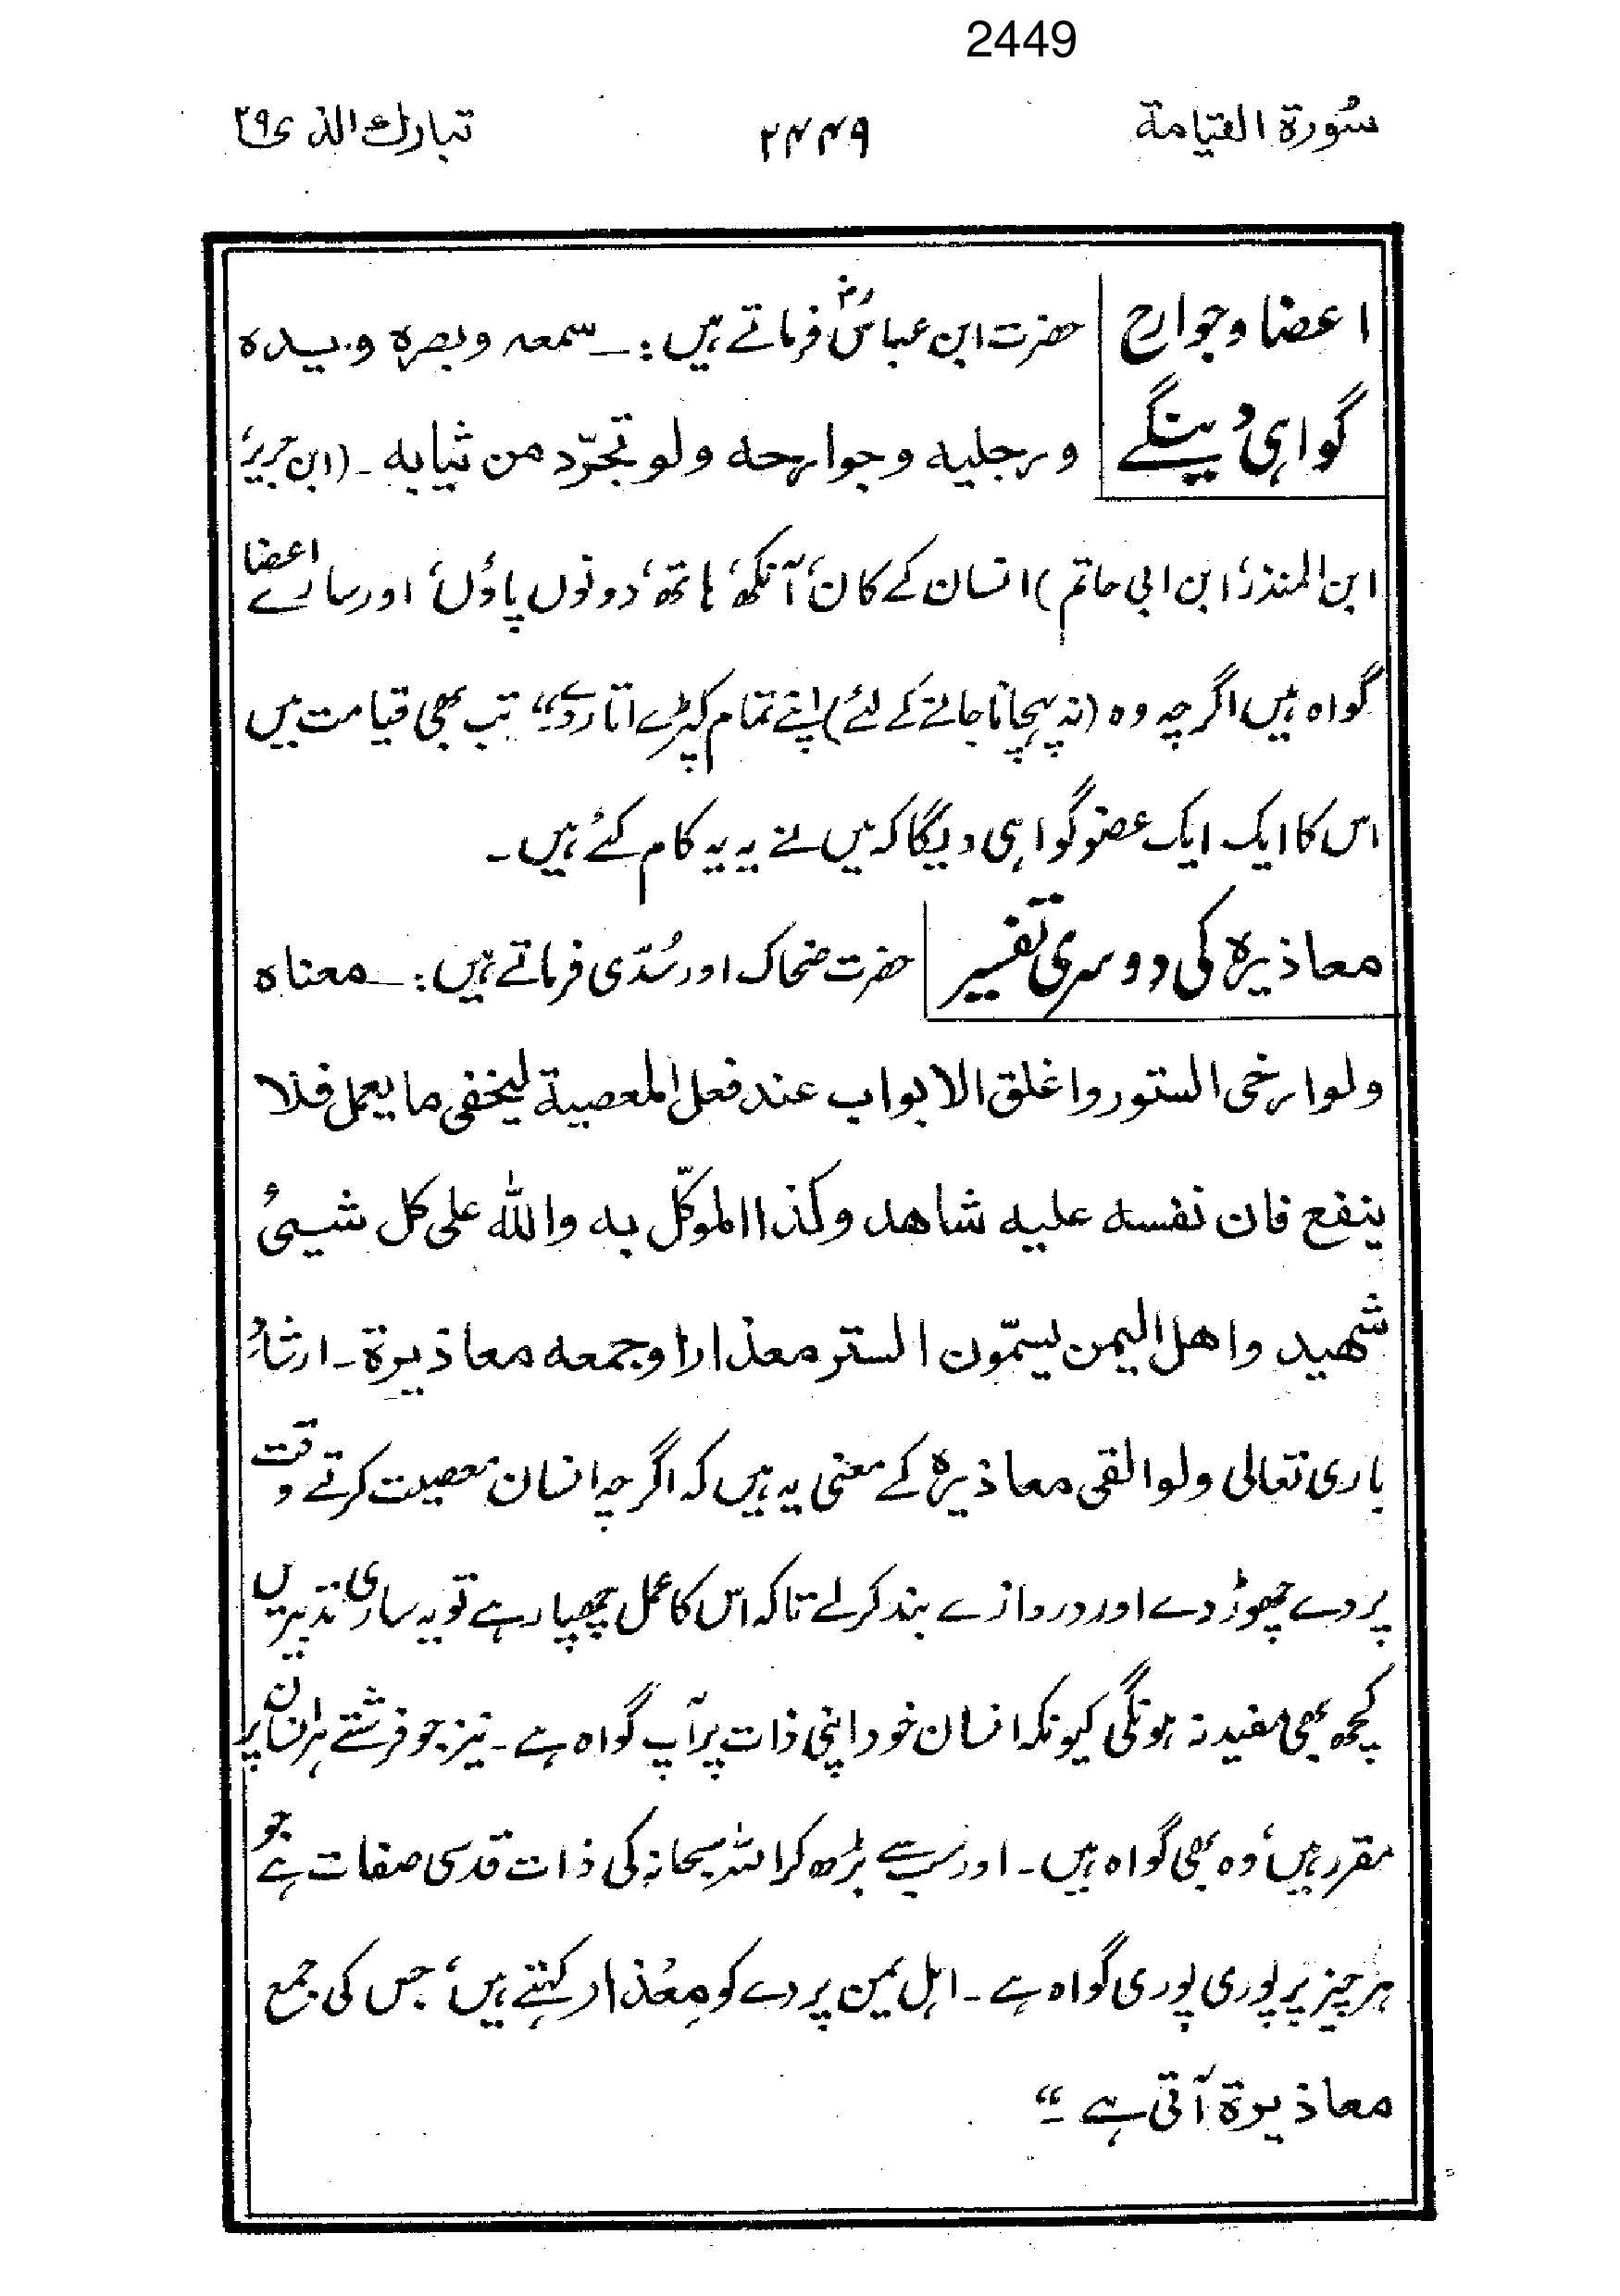 2449
سُورۃ القیامة ۲۴۴۹ تبارك الذی ۲۹
اعضا وجوارح حضرت ابن عباسؓ فرماتے ہیں:۔ سمعہ وبصرہ ویدہ
گواہی دینگے ورجلیه وجوارحه ولو تجرّد من ثیابه ۔ (ابن جریر،
ابن المنذر، ابن ابی حاتم) انسان کے کان، آنکھ، ہاتھ، دونوں پاؤں، اور سارے اعضا
گواہ ہیں اگرچہ وہ (نہ پہچانا جانے کے لئے) اپنے تمام کپڑے اتار دے“ تب بھی قیامت میں
اس کا ایک ایک عضو گواہی دیگا کہ میں نے یہ یہ کام کئے ہیں ۔
معاذیرہ کی دوسری تفسیر حضرت ضحاک اور سُدّی فرماتے ہیں:۔ معناه
ولوارخی الستور واغلق الابواب عند فعل المعصیة لیخفی ما یعمل فلا
ینفع فان نفسه علیه شاهد وکذا الموکّل به والله علی کل شییٔ
شهید واهل الیمن یسمّون الستر معذارا وجمعه معاذیرة ۔ ارشادِ
باری تعالی ولو القی معاذیرہ کے معنی یہ ہیں کہ اگرچہ انسان معصیت کرتے وقت
پردے چھوڑ دے اور دروازے بند کرلے تاکہ اس کا عمل چھپا رہے تو یہ ساری تدبیریں
کچھ بھی مفید نہ ہونگی کیونکہ انسان خود اپنی ذات پر آپ گواہ ہے ۔ نیز جو فرشتے ہر انسان پر
مقرر ہیں، وہ بھی گواہ ہیں ۔ اور سب سے بڑھ کر اللہ سبحانہٗ کی ذات قدسی صفات ہے، جو
ہر چیز پر پوری پوری گواہ ہے ۔ اہل یمن پردے کو مِعْذار کہتے ہیں، جس کی جمع
معاذیرة آتی ہے ۔“